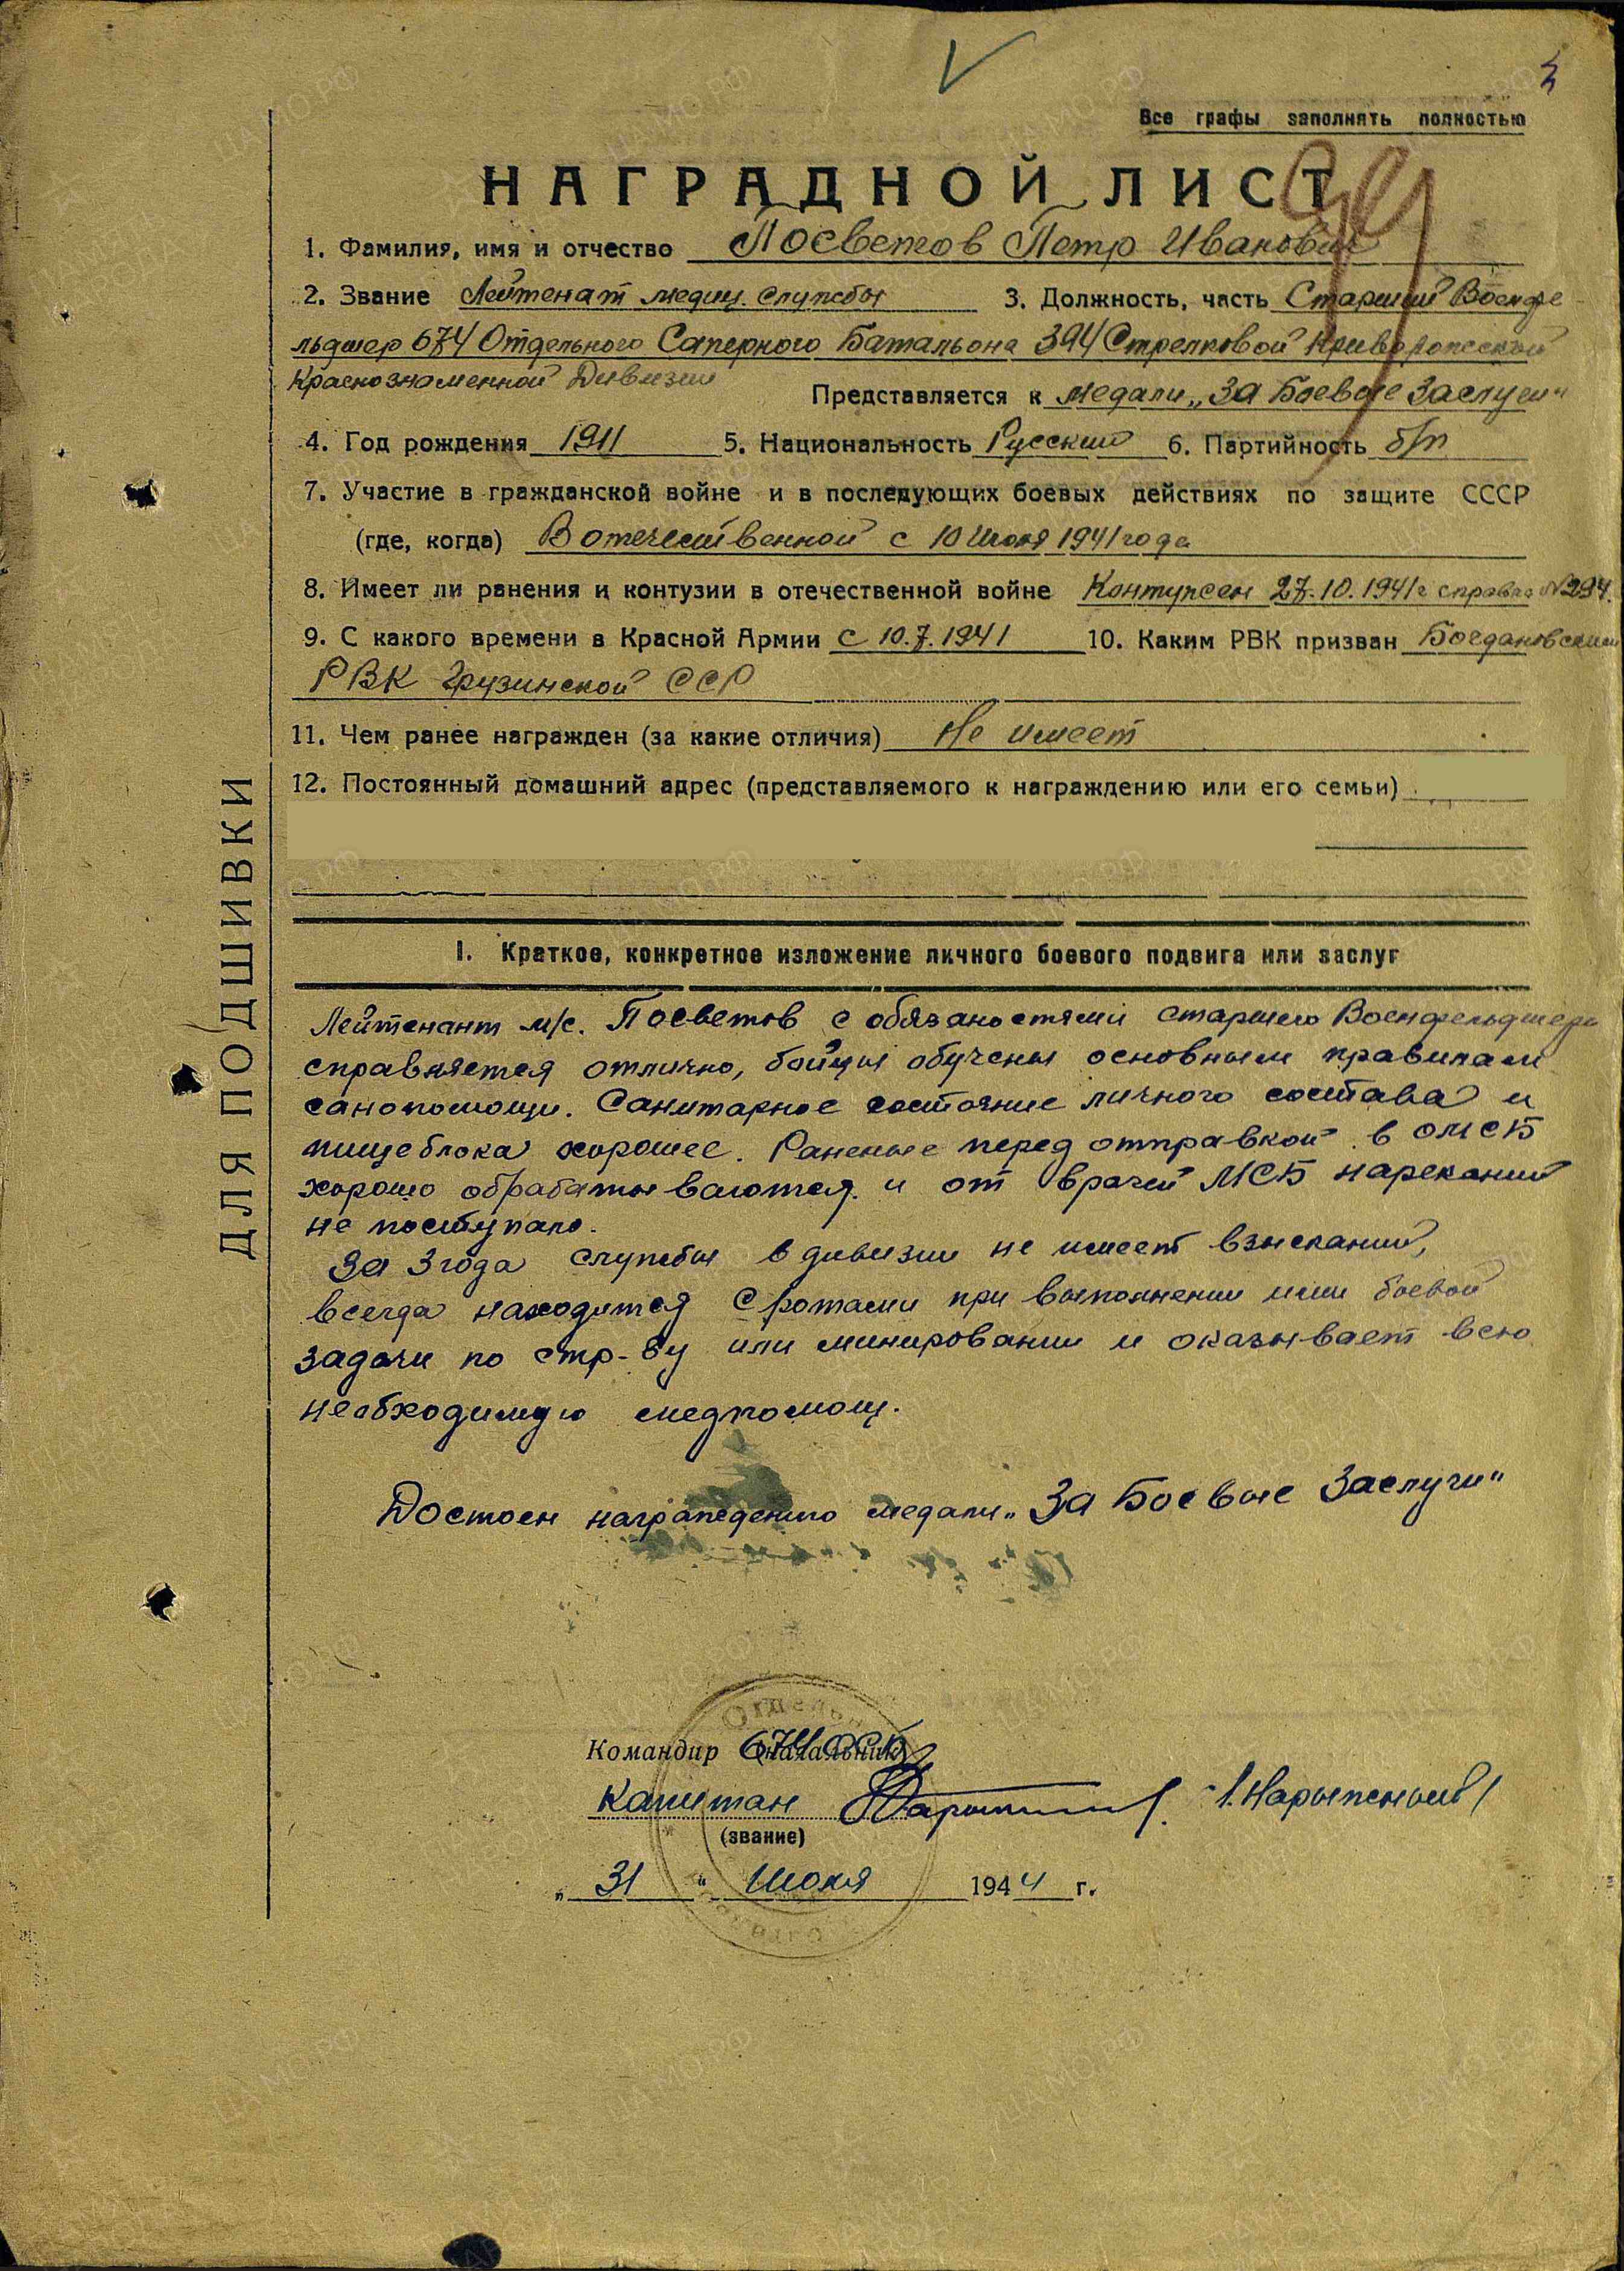 Все графы заполнять полностью
НАГРАДНОЙ ЛИСТ
1. Фамилия, имя и отчество Посветов Петр Иванович
2. Звание Лейтенат медиц. службы 3. Должность, часть Старший Военфе-
льдшер 674 Отдельного Саперного Батальона 394 Стрелковой Криворожской
Краснознаменной Дивизии
Представляется к медали „За Боевые Заслуги"
4. Год рождения 1911 5. Национальность Русский 6. Партийность б/п
7. Участие в гражданской войне и в последующих боевых действиях по защите СССР
(где, когда) В отечественной с 10 Июля 1941 года
8. Имеет ли ранения и контузии в отечественной войне Контужен 27.10.1941г справка №294.
9. С какого времени в Красной Армии с 10.7.1941 10. Каким РВК призван Богдановским
РВК Грузинской ССР
11. Чем ранее награжден (за какие отличия) Не имеет
12. Постоянный домашний адрес (представляемого к награждению или его семьи)
I. Краткое, конкретное изложение личного боевого подвига или заслуг
Лейтенант м/с. Посветов с обязаностями старшего Военфельдшера
справляется отлично, бойцы обучены основным правилам
санопомощи. Санитарное состояние личного состава и
пищеблока хорошее. Раненые перед отправкой в ОМСБ
хорошо обрабатываются и от врачей МСБ нареканий
не поступало.
За 3 года службы в дивизии не имеет взысканий,
всегда находится с ротами при выполнении ими боевой
задачи по стр-ву или минировании и оказывает всю
необходимую медпомощ.
Достоен награждению медали „За Боевые Заслуги"
Командир (начальник) 674 ОСБ
Капитан /Нарыжный/
(звание)
„31" Июля 1944 г.
ДЛЯ ПОДШИВКИ